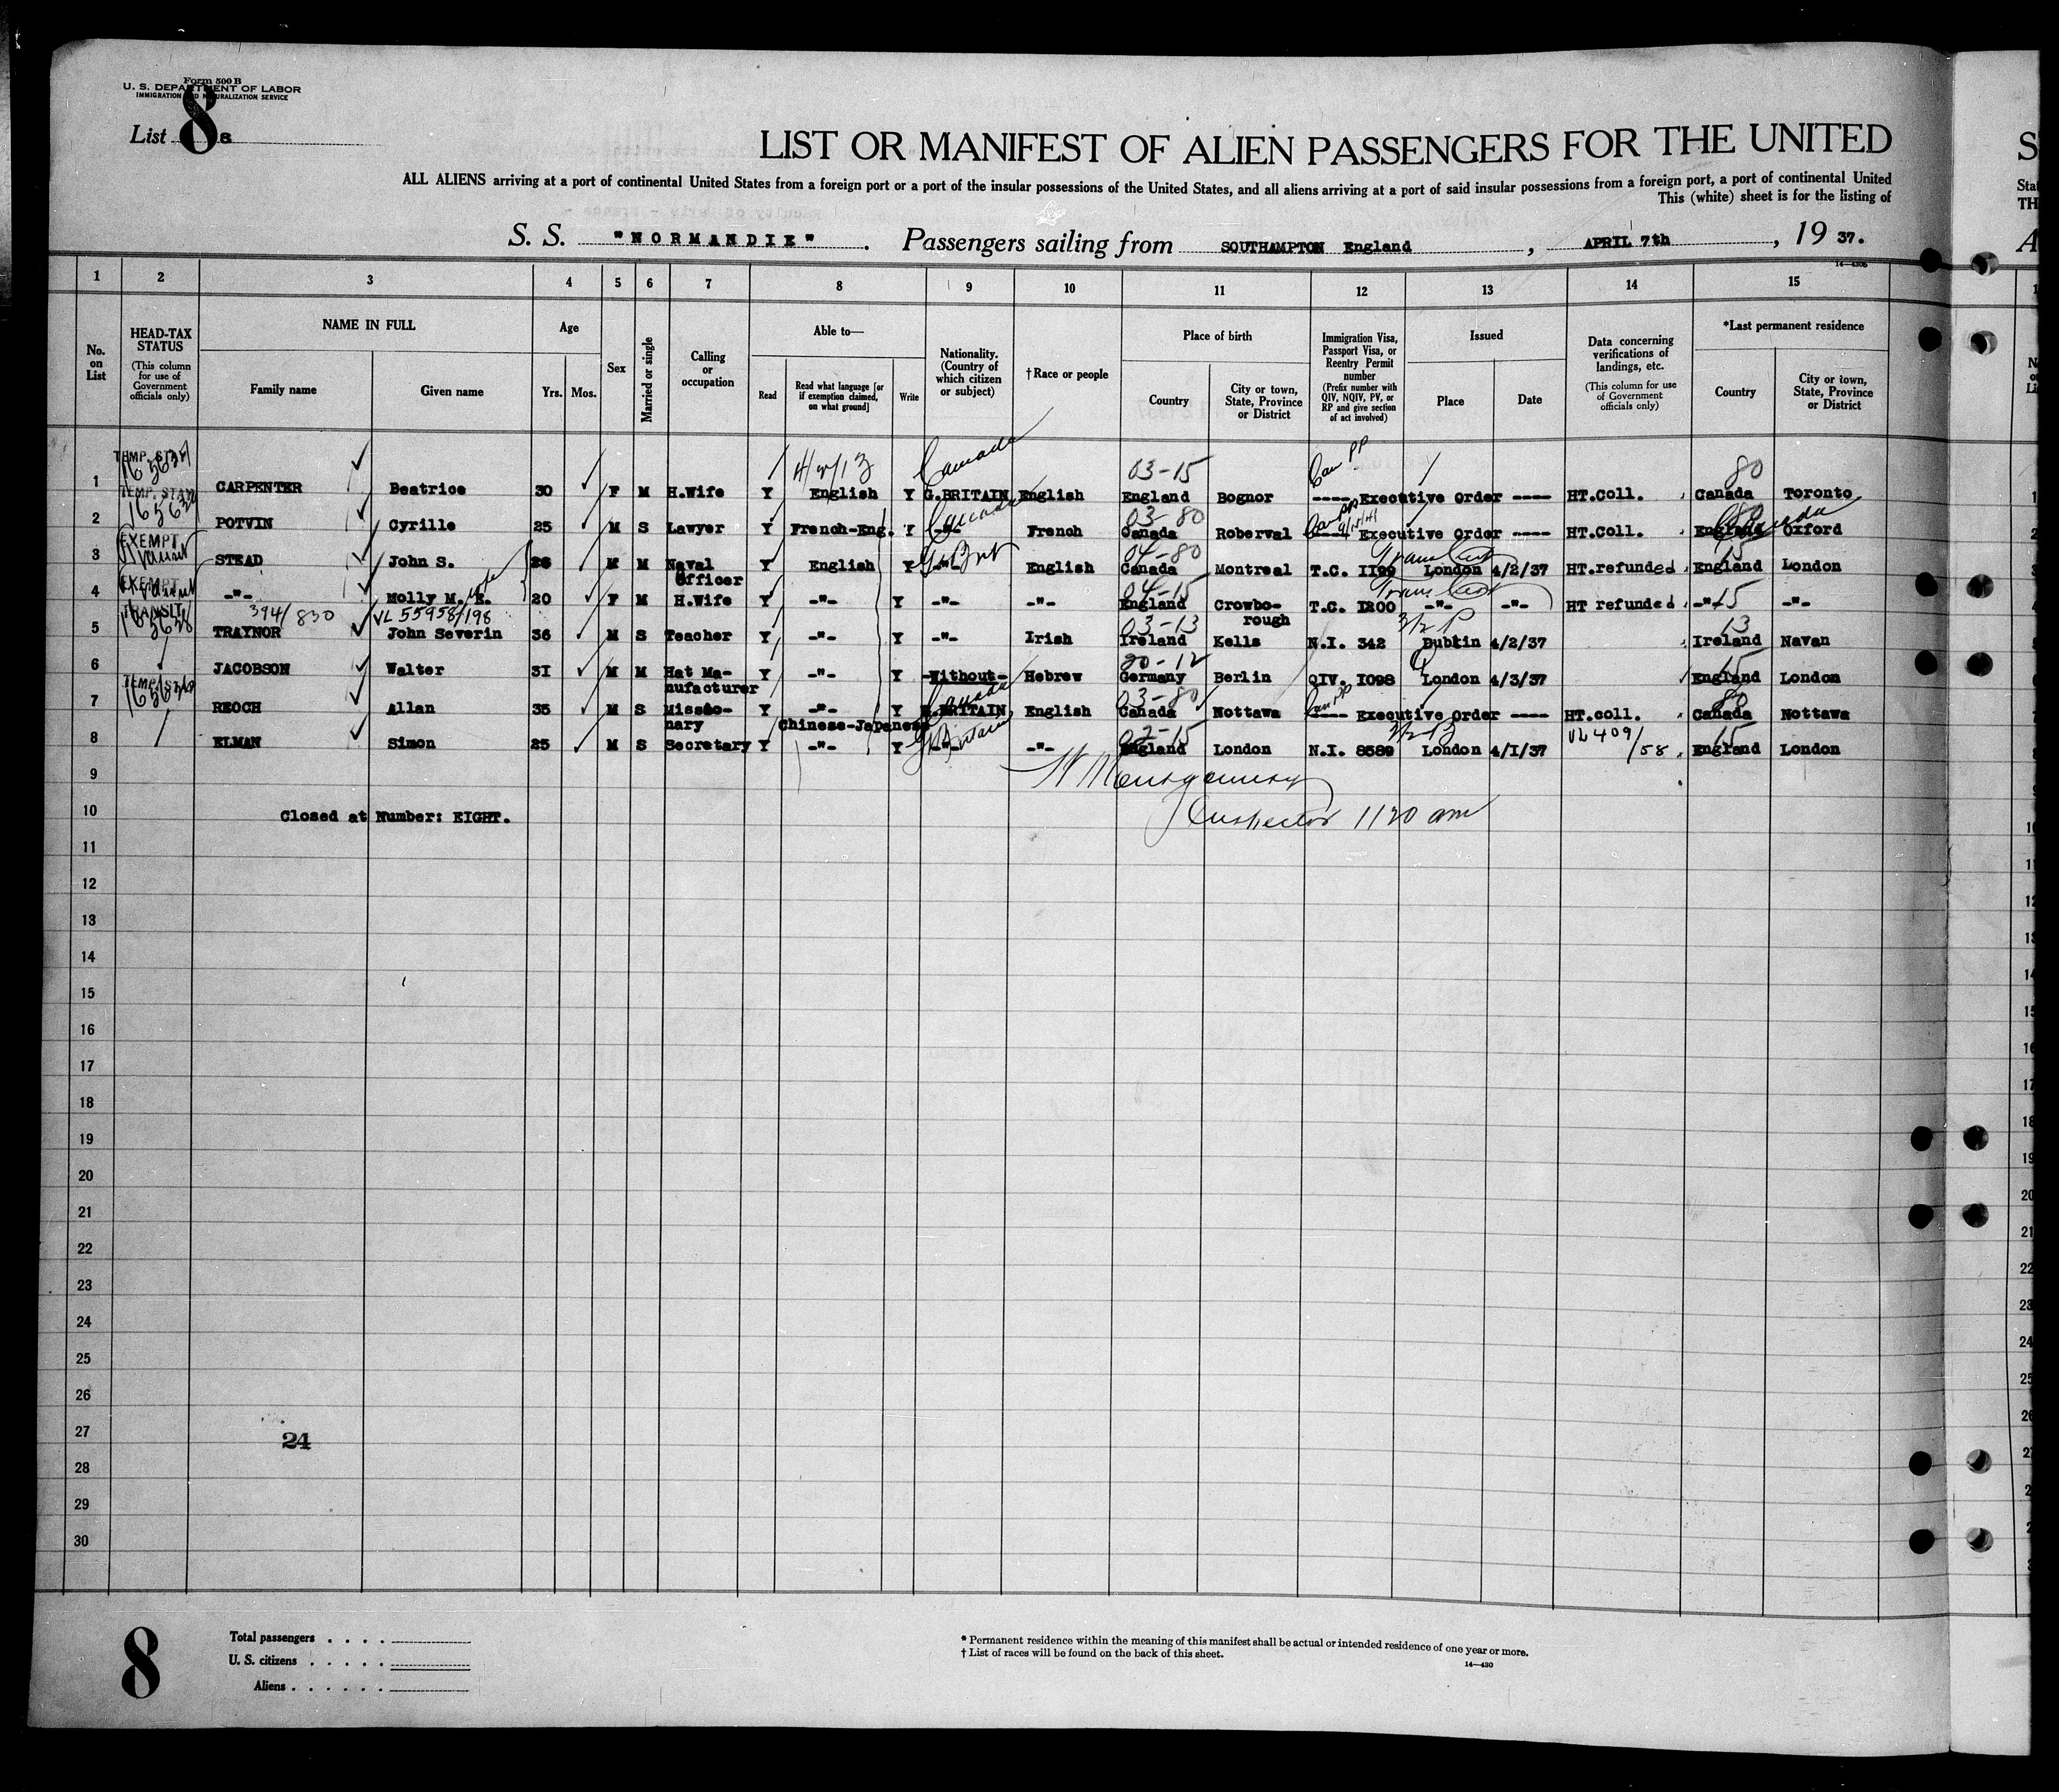 Form 500 B
U. S. DEPARTMENT OF LABOR
IMMIGRATION AND NATURALIZATION SERVICE
List 8 8
LIST OR MANIFEST OF ALIEN PASSENGERS FOR THE UNITED
ALL ALIENS arriving at a port of continental United States from a foreign port or a port of the insular possessions of the United States, and all aliens arriving at a port of said insular possessions from a foreign port, a port of continental United
This (white) sheet is for the listing of
S. S. "NORMANDIE". Passengers sailing from SOUTHAMPTON England, APRIL 7th, 19 37.
1 2 3 4 5 6 7 8 9 10 11 12 13 14 15
No. on List
HEAD-TAX STATUS (This column for use of Government officials only)
NAME IN FULL
Family name Given name
Age
Yrs. Mos.
Sex
Married or single
Calling or occupation
Able to—
Read Read what language [or if exemption claimed, on what ground] Write
Nationality. (Country of which citizen or subject)
†Race or people
Place of birth
Country City or town, State, Province or District
Immigration Visa, Passport Visa, or Reentry Permit number (Prefix number with QIV, NQIV, PV, or RP and give section of act involved)
Issued
Place Date
Data concerning verifications of landings, etc. (This column for use of Government officials only)
*Last permanent residence
Country City or town, State, Province or District
TEMP. STAY Canada 03-15 Can PP 80
1 CARPENTER Beatrice 30 F M H.Wife Y English Y G.BRITAIN English England Bognor ---- Executive Order ---- HT.Coll. Canada Toronto
TEMP. STAY Canada 03-80 Can PP 80 Canada
2 POTVIN Cyrille 25 M S Lawyer Y French-Eng. Y -"- French Canada Roberval ---- Executive Order ---- HT.Coll. England Oxford
EXEMPT Gt Brit 04-80 15
3 STEAD John S. 26 M M Naval Officer Y English Y -"- English Canada Montreal T.C. 1199 London 4/2/37 HT.refunded England London
EXEMPT wife 04-15 15
4 -"- Molly M. E. 20 F M H.Wife Y -"- Y -"- -"- England Crowborough T.C. 1200 -"- -"- HT refunded -"- -"-
TRANSIT 394/830 VL 55958/198 03-13 3/2 P 13
5 TRAYNOR John Severin 36 M S Teacher Y -"- Y -"- Irish Ireland Kells N.I. 342 Dublin 4/2/37 Ireland Navan
15
6 JACOBSON Walter 31 M M Hat Manufacturer Y -"- Y -Without- Hebrew Germany Berlin QIV. 1098 London 4/3/37 England London
TEMP. STAY Canada 03-80 Can PP 80
7 REOCH Allan 35 M S Missionary Y -"- Chinese-Japanese Y G.BRITAIN English Canada Nottawa ---- Executive Order ---- HT.coll. Canada Nottawa
02-15 VL 409/58 15
8 ELMAN Simon 25 M S Secretary Y -"- Y -"- -"- England London N.I. 8589 London 4/1/37 England London
9 Montgomery
10 Closed at Number: EIGHT. Inspector 1120 am
11
12
13
14
15
16
17
18
19
20
21
22
23
24
25
26
27 24
28
29
30
8
Total passengers . . . .
U. S. citizens . . . . .
Aliens . . . . . .
* Permanent residence within the meaning of this manifest shall be actual or intended residence of one year or more.
† List of races will be found on the back of this sheet.
14—430